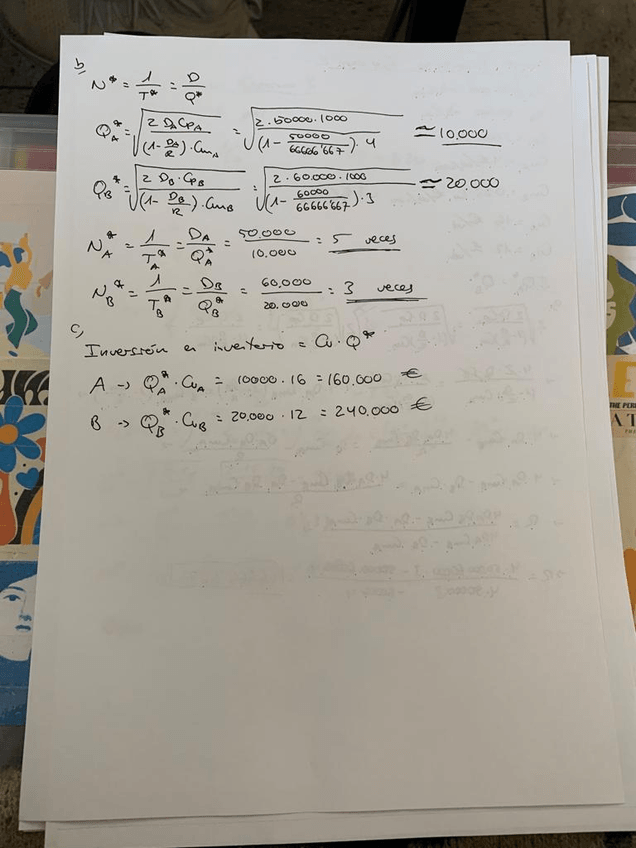 b)
N* = 1/T* = D/Q*
Q_A* = √(2 D_A C_PA / ((1 - D_A/R) · C_mA)) = √(2 · 50000 · 1000 / ((1 - 50000/66666'667) · 4)) ≈ 10,000
Q_B* = √(2 D_B · C_PB / ((1 - D_B/R) · C_mB)) = √(2 · 60.000 · 1000 / ((1 - 60000/66666'667) · 3)) ≈ 20,000
N_A* = 1/T_A* = D_A/Q_A* = 50,000/10.000 = 5 veces
N_B* = 1/T_B* = D_B/Q_B* = 60,000/20.000 = 3 veces
c)
Inversión en inventario = Cu · Q*
A → Q_A* · Cu_A = 10000 · 16 = 160,000 €
B → Q_B* · Cu_B = 20,000 · 12 = 240,000 €
THE PER